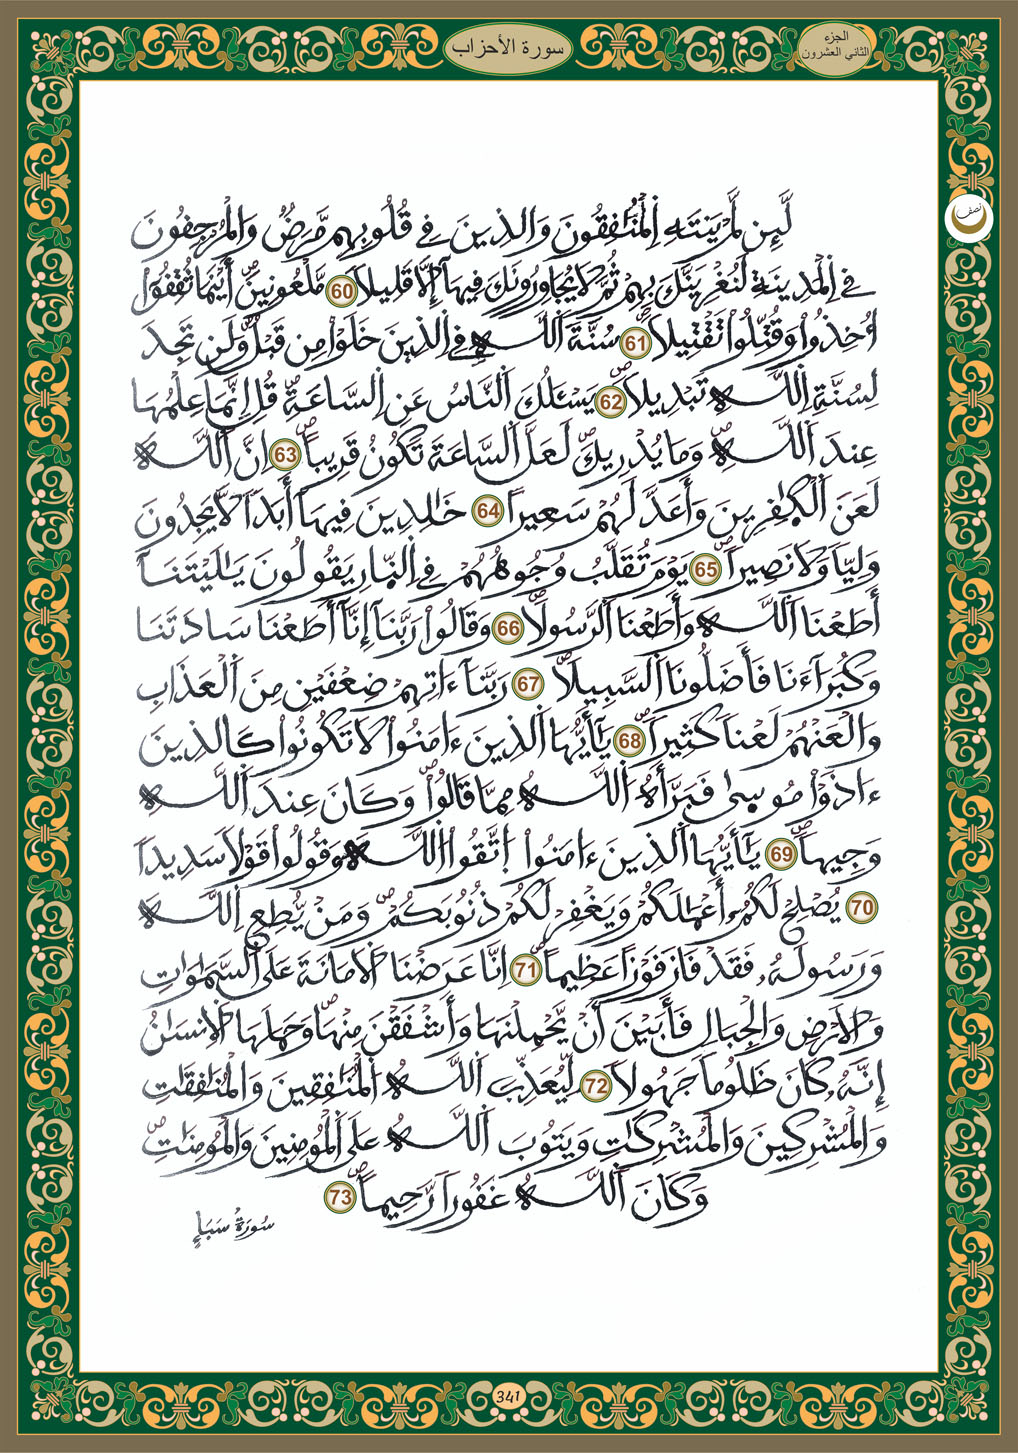 سورة الأحزاب
الجزء
الثاني العشرون
نصف
لَّئِن لَّمْ يَنتَهِ اِ۬لْمُنَٰفِقُونَ وَالذِينَ فِے قُلُوبِهِم مَّرَضٞ وَالْمُرْجِفُونَ
فِے اِ۬لْمَدِينَةِ لَنُغْرِيَنَّكَ بِهِمْ ثُمَّ لَا يُجَاوِرُونَكَ فِيهَآ إِلَّا قَلِيلاٗ 60 مَّلْعُونِينَۖ أَيْنَمَا ثُقِفُوٓاْ
أُخِذُواْ وَقُتِّلُواْ تَقْتِيلاٗۖ 61 سُنَّةَ اَ۬للَّهِ فِے اِ۬لذِينَ خَلَوْاْ مِن قَبْلُۖ وَلَن تَجِدَ
لِسُنَّةِ اِ۬للَّهِ تَبْدِيلاٗۖ 62 يَسْـَٔلُكَ اَ۬لنَّاسُ عَنِ اِ۬لسَّاعَةِۖ قُلِ اِنَّمَا عِلْمُهَا
عِندَ اَ۬للَّهِۖ وَمَا يُدْرِيكَۖ لَعَلَّ اَ۬لسَّاعَةَ تَكُونُ قَرِيباًۖ 63 اِنَّ اَ۬للَّهَ
لَعَنَ اَ۬لْكٰ۪فِرِينَ وَأَعَدَّ لَهُمْ سَعِيراً 64 خَٰلِدِينَ فِيهَآ أَبَداٗ لَّا يَجِدُونَ
وَلِيّاٗ وَلَا نَصِيراٗۖ 65 يَوْمَ تُقَلَّبُ وُجُوهُهُمْ فِے اِ۬لنّ۪ارِ يَقُولُونَ يَٰلَيْتَنَآ
أَطَعْنَا اَ۬للَّهَ وَأَطَعْنَا اَ۬لرَّسُولَاۖ 66 وَقَالُواْ رَبَّنَآ إِنَّآ أَطَعْنَا سَادَتَنَا
وَكُبَرَآءَنَا فَأَضَلُّونَا اَ۬لسَّبِيلَاۖ 67 رَبَّنَآ ءَاتِهِمْ ضِعْفَيْنِ مِنَ اَ۬لْعَذَابِ
وَالْعَنْهُمْ لَعْناٗ كَثِيراٗۖ 68 يَٰٓأَيُّهَا اَ۬لذِينَ ءَامَنُواْ لَا تَكُونُواْ كَالذِينَ
ءَاذَوْاْ مُوس۪يٰ فَبَرَّأَهُ اُ۬للَّهُ مِمَّا قَالُواْۖ وَكَانَ عِندَ اَ۬للَّهِ
وَجِيهاٗۖ 69 يَٰٓأَيُّهَا اَ۬لذِينَ ءَامَنُواْ اُ۪تَّقُواْ اُ۬للَّهَ وَقُولُواْ قَوْلاٗ سَدِيداٗ
70 يُصْلِحْ لَكُمُۥٓ أَعْمَٰلَكُمْ وَيَغْفِرْ لَكُمْ ذُنُوبَكُمْۖ وَمَنْ يُّطِعِ اِ۬للَّهَ
وَرَسُولَهُۥ فَقَدْ فَازَ فَوْزاً عَظِيماًۖ 71 اِنَّا عَرَضْنَا اَ۬لَامَانَةَ عَلَي اَ۬لسَّمَٰوَٰتِ
وَالَارْضِ وَالْجِبَالِ فَأَبَيْنَ أَنْ يَّحْمِلْنَهَا وَأَشْفَقْنَ مِنْهَاۖ وَحَمَلَهَا اَ۬لِانسَٰنُ
إِنَّهُۥ كَانَ ظَلُوماٗ جَهُولاٗ 72 لِّيُعَذِّبَ اَ۬للَّهُ اُ۬لْمُنَٰفِقِينَ وَالْمُنَٰفِقَٰتِ
وَالْمُشْرِكِينَ وَالْمُشْرِكَٰتِ وَيَتُوبَ اَ۬للَّهُ عَلَي اَ۬لْمُومِنِينَ وَالْمُومِنَٰتِۖ
وَكَانَ اَ۬للَّهُ غَفُوراٗ رَّحِيماٗۖ 73
سُورَةُ سَبَإٍ
341